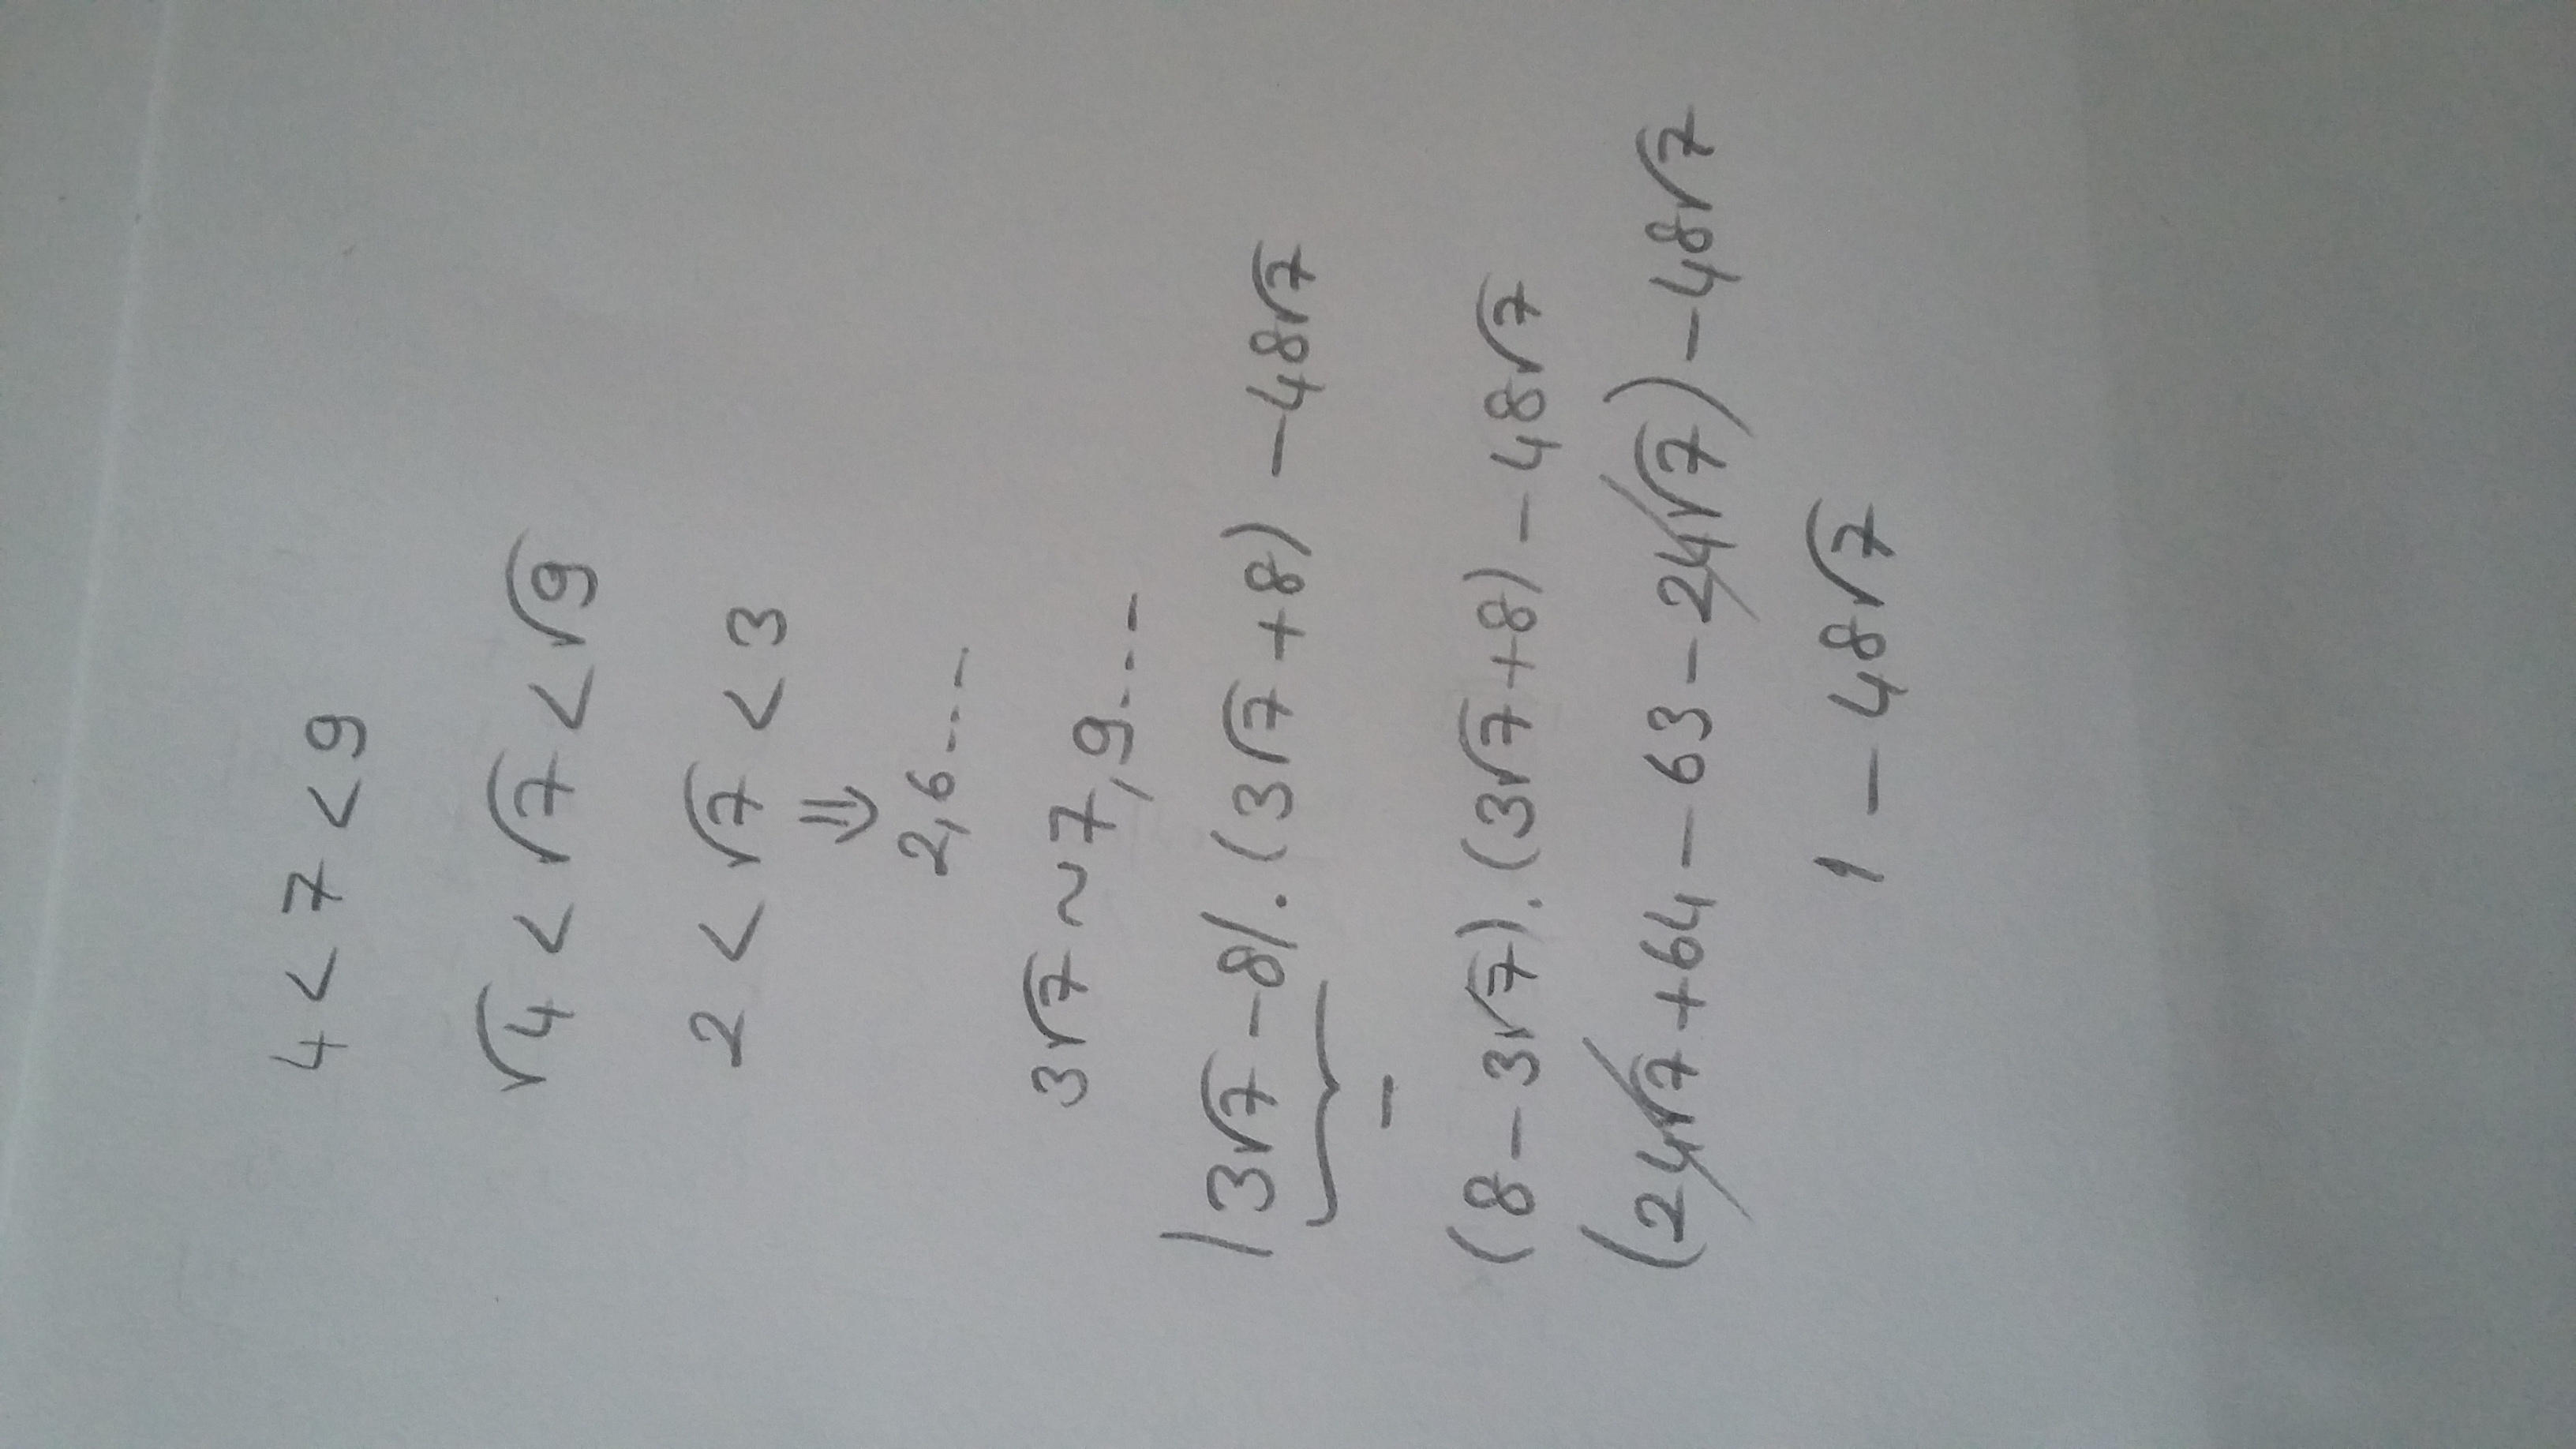 4 < 7 < 9
√4 < √7 < √9
2 < √7 < 3
⇓
2,6...
3√7 ~ 7,9...
|3√7 - 8|.(3√7 + 8) - 48√7
-
(8 - 3√7).(3√7 + 8) - 48√7
(24√7 + 64 - 63 - 24√7) - 48√7
1 - 48√7